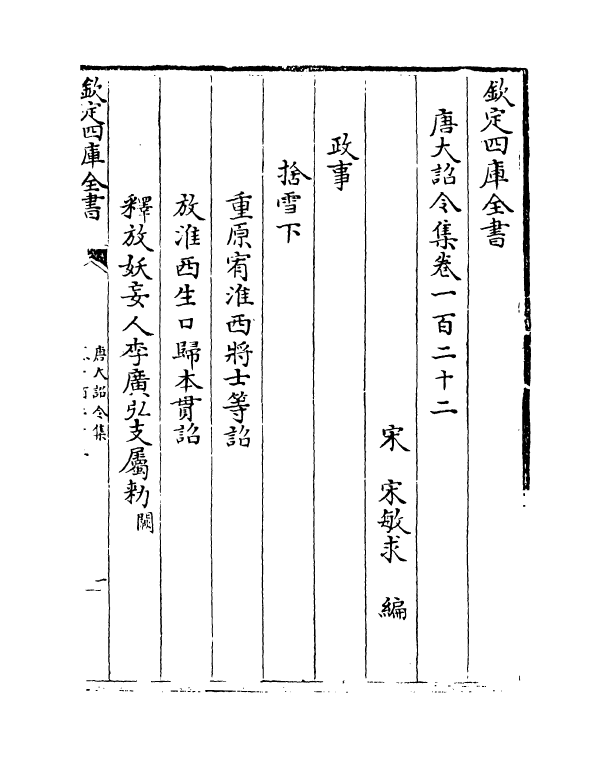 欽定四庫全書
唐大詔令集卷一百二十二
宋　宋敏求　編
政事
捨雪下
重原宥淮西將士等詔
放淮西生口歸本貫詔
釋放妖妄人李廣弘支屬勅闕
欽定四庫全書
唐大詔令集
一